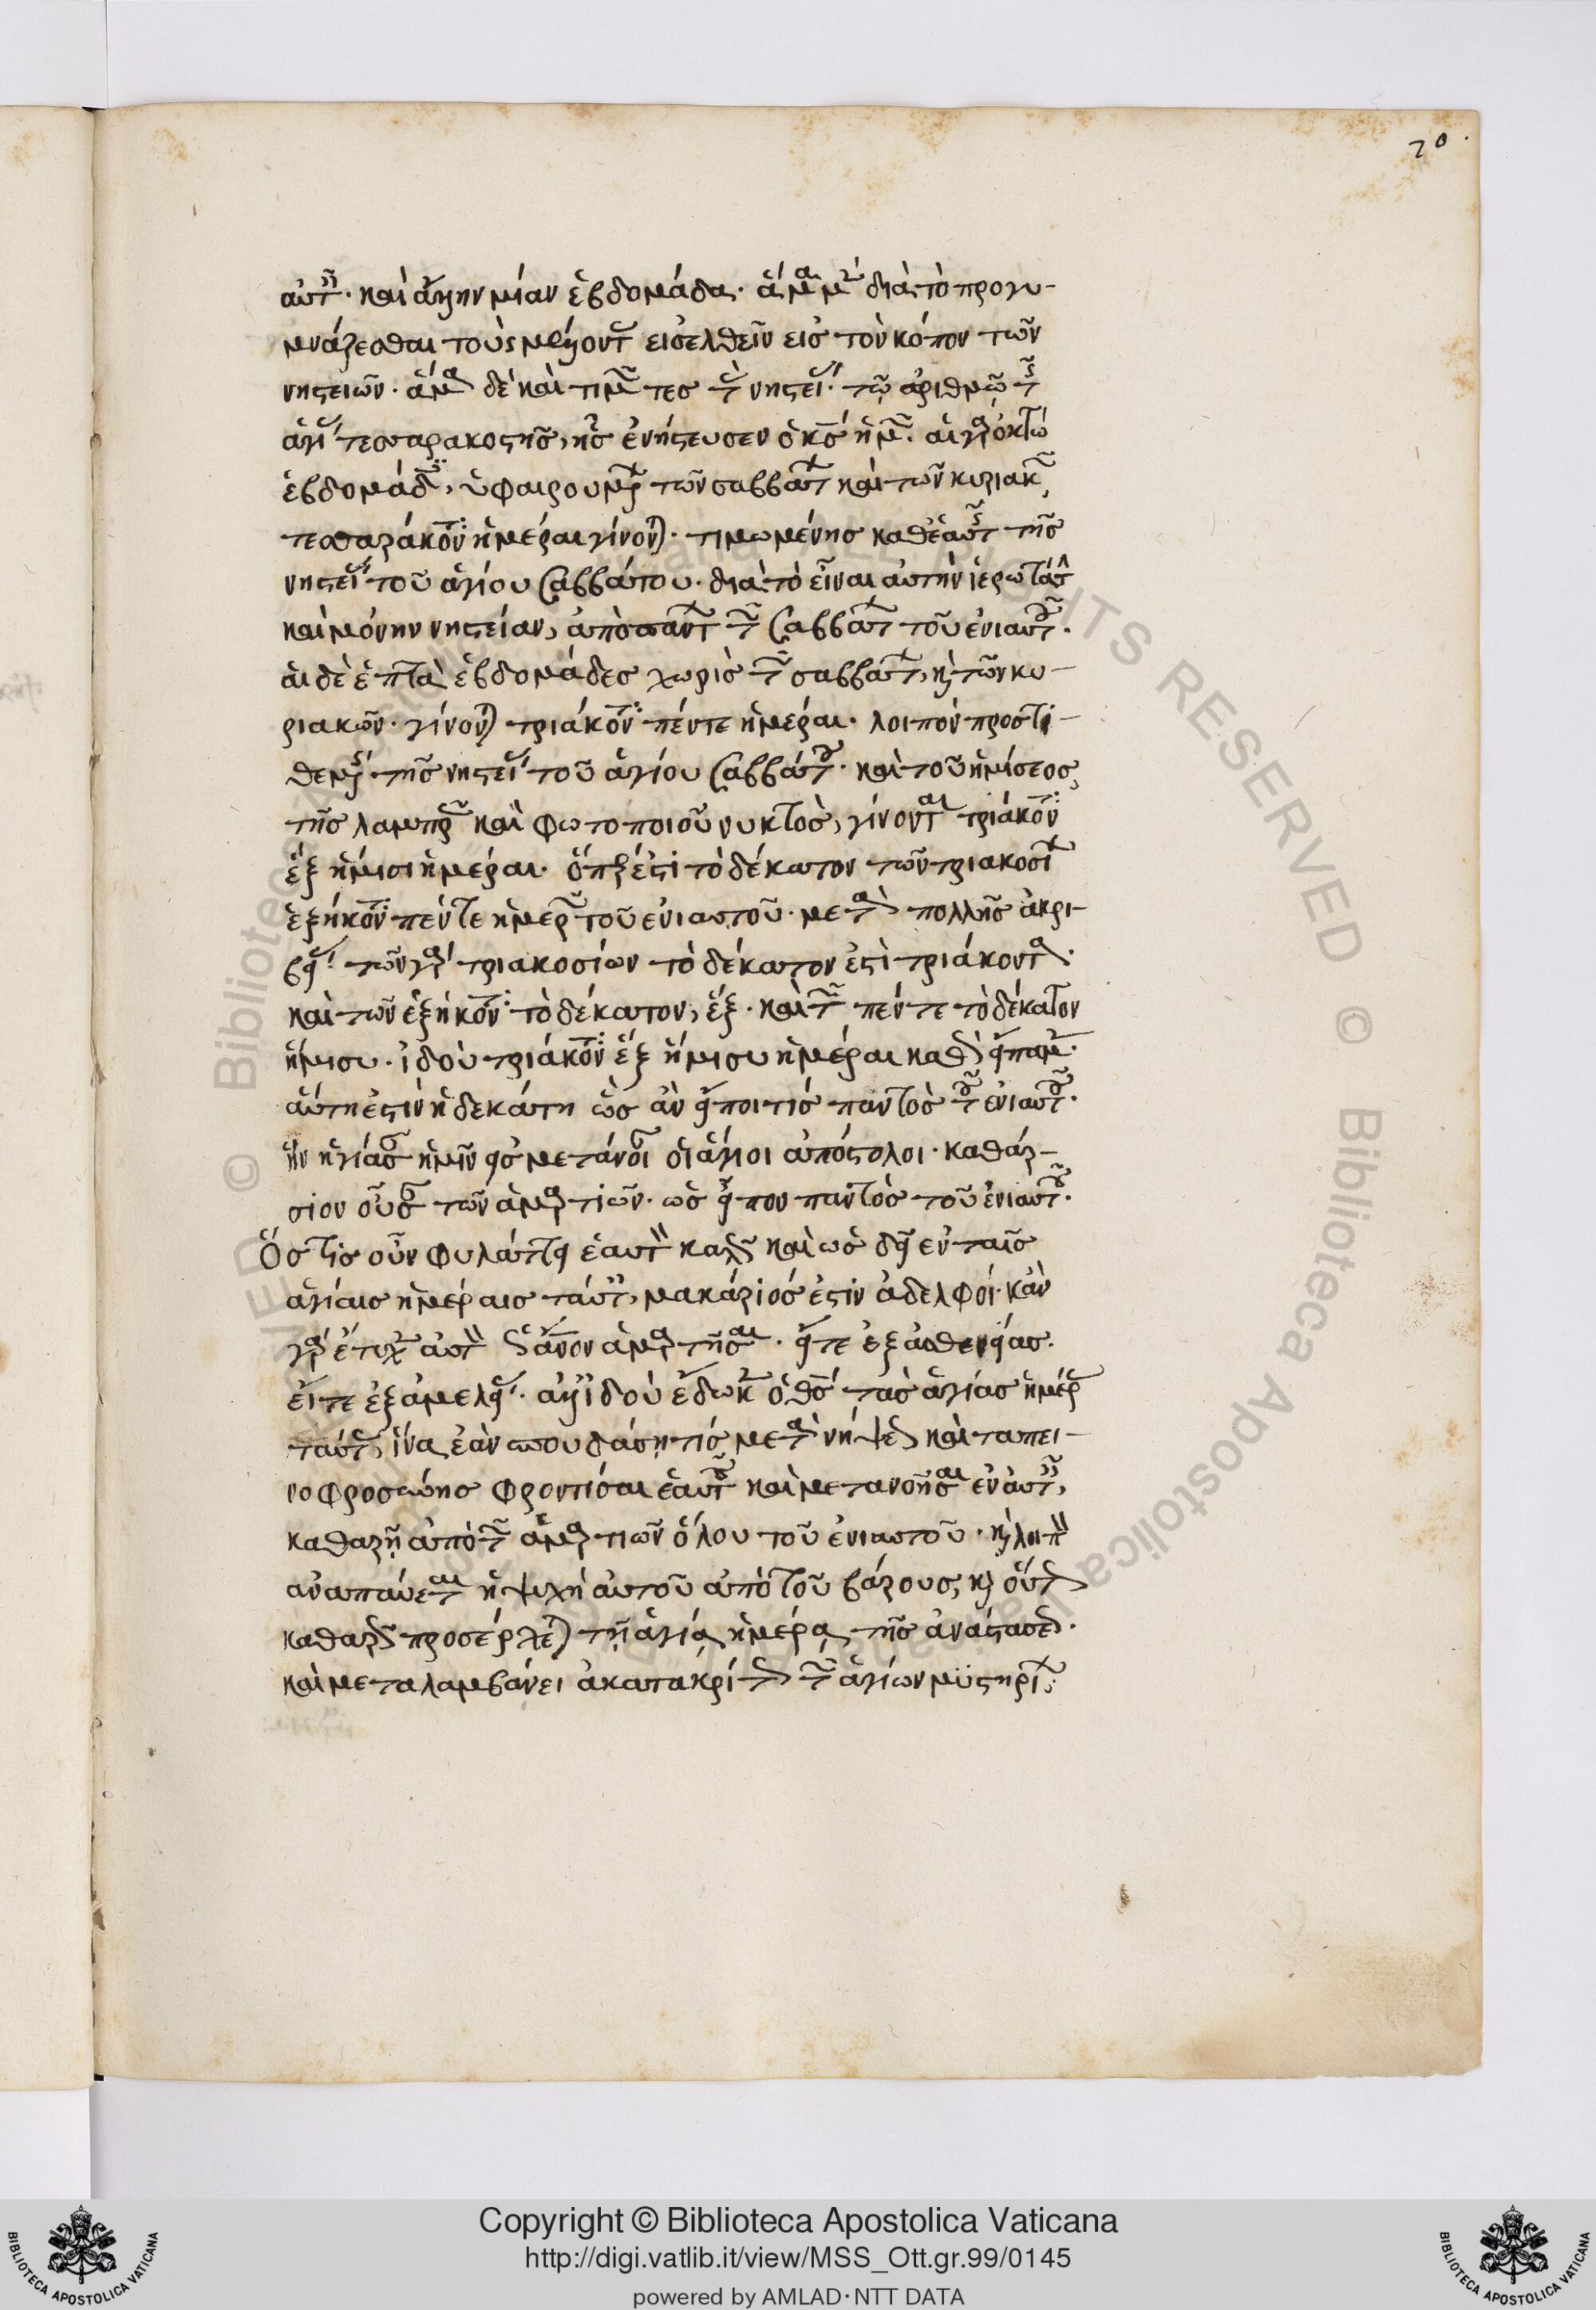 70.
αὐτοῖς. καὶ ἄλλην μίαν ἑβδομάδα. ἅμα μὲν διὰ τὸ προγυ-
μνάζεσθαι τοὺς μέλλοντας εἰσελθεῖν εἰς τὸν κόπον τῶν
νηστειῶν. ἅμα δὲ καὶ τιμῶντες τὴν νηστείαν. τῷ ἀριθμῷ τῆς
ἁγίας τεσσαρακοστῆς, ἧς ἐνήστευσεν ὁ κς ἡμῶν. αἱ γὰρ ὀκτὼ
ἑβδομάδες, ὑφαιρουμένων τῶν σαββάτων καὶ τῶν κυριακῶν,
τεσσαράκοντα ἡμέραι γίνονται. τιμωμένης καθ' ἑαυτῆς τῆς
νηστείας τοῦ ἁγίου Σαββάτου. διὰ τὸ εἶναι αὐτὴν ἱερωτάτην
καὶ μόνην νηστείαν, ἀπὸ πάντων τῶν Σαββάτων τοῦ ἐνιαυτοῦ.
αἱ δὲ ἑπτὰ ἑβδομάδες χωρὶς τῶν σαββάτων, καὶ τῶν κυ-
ριακῶν. γίνονται τριάκοντα πέντε ἡμέραι. λοιπὸν προστι-
θεμένης τῆς νηστείας τοῦ ἁγίου Σαββάτου. καὶ τοῦ ἡμίσεος
τῆς λαμπρᾶς καὶ φωτοποιοῦ νυκτὸς, γίνονται τριάκοντα
ἓξ ἥμισι ἡμέραι. ὅπερ ἐστὶ τὸ δέκατον τῶν τριακοσίων
ἑξήκοντα πέντε ἡμερῶν τοῦ ἐνιαυτοῦ. μετὰ πολλῆς ἀκρι-
βείας. τῶν γὰρ τριακοσίων τὸ δέκατον ἐστὶ τριάκοντα.
καὶ τῶν ἑξήκοντα τὸ δέκατον, ἕξ. καὶ τῶν πέντε τὸ δέκατον
ἥμισυ. ἰδοὺ τριάκοντα ἓξ ἥμισυ ἡμέραι καθὼς εἴπαμεν.
αὕτη ἐστὶν ἡ δεκάτη ὡς ἂν εἴποι τις παντὸς τοῦ ἐνιαυτοῦ.
ἣν ἡγίασαν ἡμῖν εἰς μετάνοιαν οἱ ἅγιοι ἀπόστολοι. καθάρ-
σιον οὖσαν τῶν ἁμαρτιῶν. ὡς εἶπον παντὸς τοῦ ἐνιαυτοῦ.
Ὅστις οὖν φυλάττει ἑαυτὸν καλῶς καὶ ὡς δεῖ ἐν ταῖς
ἁγίαις ἡμέραις ταύταις, μακάριός ἐστιν ἀδελφοί. κἂν
γὰρ ἔτυχεν αὐτὸν ὡς ἄνον ἁμαρτῆσαι. εἴτε ἐξ ἀσθενείας.
εἴτε ἐξ ἀμελείας. ἀλλ' ἰδοὺ ἔδωκεν ὁ θς τὰς ἁγίας ἡμέρας
ταύτας, ἵνα ἐὰν σπουδάσῃ τις μετὰ νήψεως καὶ ταπει-
νοφροσύνης φροντίσαι ἑαυτοῦ καὶ μετανοῆσαι ἐν αὐταῖς,
καθαρῇ ἀπὸ τῶν ἁμαρτιῶν ὅλου τοῦ ἐνιαυτοῦ. καὶ λοιπὸν
ἀναπαύεται ἡ ψυχὴ αὐτοῦ ἀπὸ τοῦ βάρους, καὶ οὕτως
καθαρῶς προσέρχεται τῇ ἁγίᾳ ἡμέρᾳ τῆς ἀναστάσεως.
καὶ μεταλαμβάνει ἀκατακρίτως τῶν ἁγίων μυστηρίων.
© Biblioteca Apostolica Vaticana ALL RIGHTS RESERVED
Copyright © Biblioteca Apostolica Vaticana
http://digi.vatlib.it/view/MSS_Ott.gr.99/0145
powered by AMLAD·NTT DATA
BIBLIOTECA APOSTOLICA VATICANA
BIBLIOTECA APOSTOLICA VATICANA